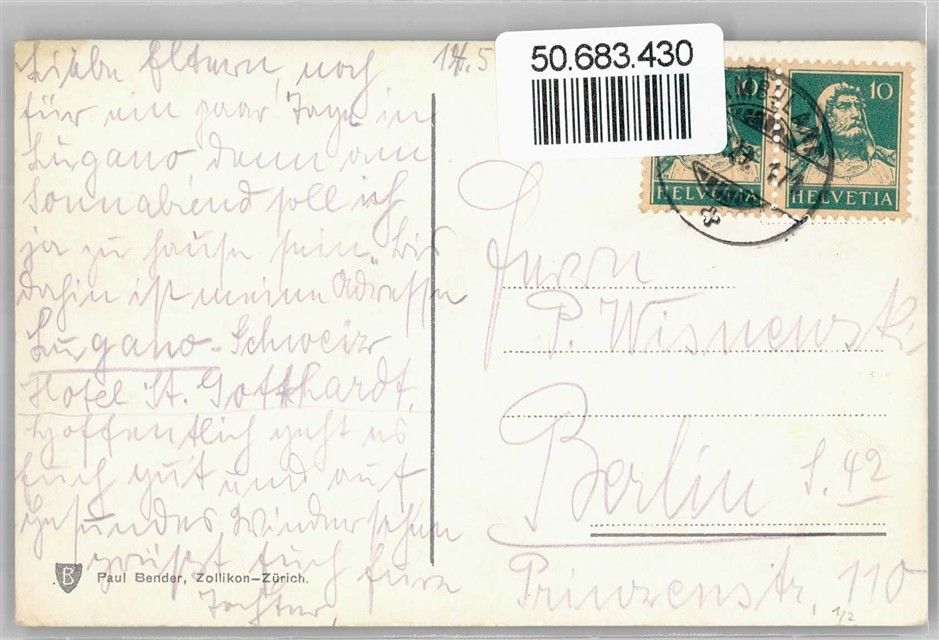 19.5
Liebe Eltern, noch
für ein paar Tage in
Lugano, denn am
Sonnabend soll ich
ja zu Hause sein. Bis
dahin ist meine Adresse
Lugano-Schweiz
Hotel St. Gotthardt.
Hoffentlich geht es
Euch gut und auf
gesundes Wiedersehen
grüßt Euch Eure
Tochter
Paul Bender, Zollikon-Zürich.
B
50.683.430
10
HELVETIA
10
HELVETIA
Herrn
P. Wisnewski
Berlin S. 42
Prinzenstr, 110
1/2